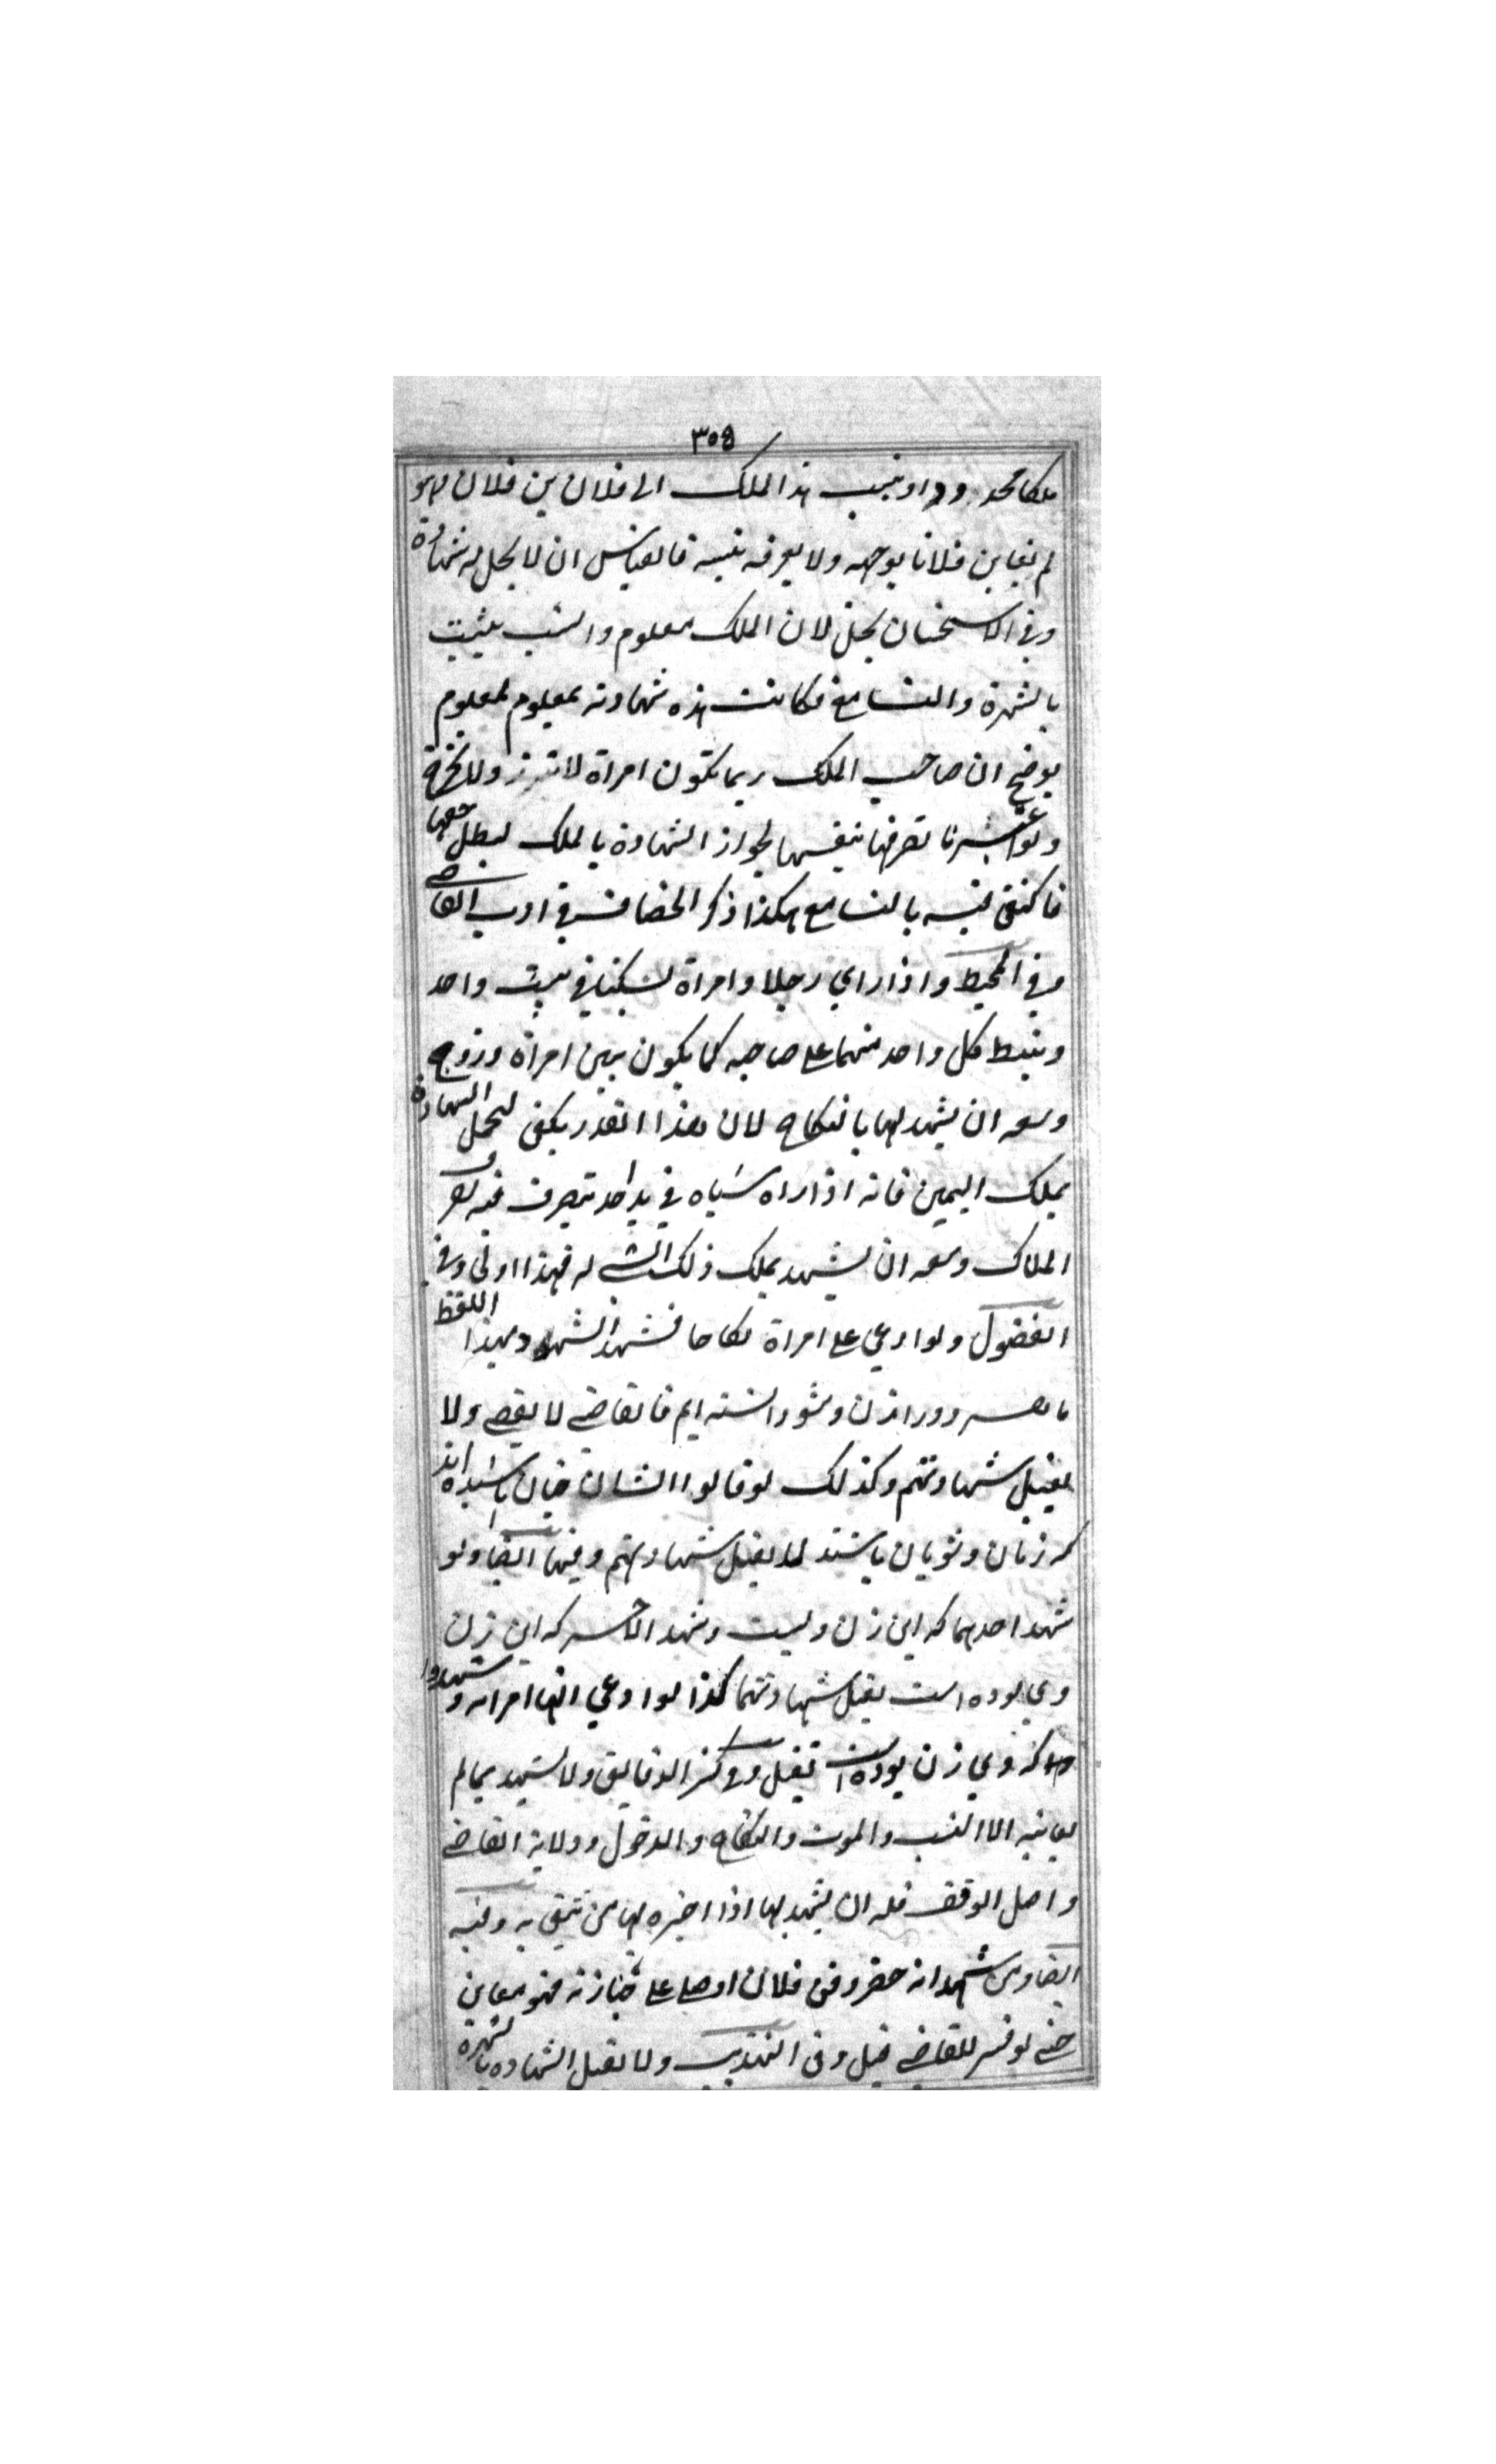 ٣٥٩
ملكا محدودا وينسب هذا الملك الى فلان بن فلان وهو
لم يعاين فلانا بوجهه ولا يعرفه بنسبه فالقياس ان لا يحل له شهادة
وفي الاستحسان يحل لان الملك معلوم والنسب يثبت
بالشهرة والتسامع فكانت هذه شهادته بمعلوم لمعلوم
يوضح ان صاحب الملك ربما تكون امراة لا تبرز ولا تخرج
ولو اعتبرنا تصرفها بنفسها لجواز الشهادة بالملك لبطل حقها
فاكتفى فيه بالتسامع هكذا ذكر الخصاف في ادب القاضي
وفي المحيط واذا راي رجلا وامراة يسكنا في بيت واحد
وينبسط كل واحد منهما على صاحبه كما يكون بين امراة وزوج
وسعه ان يشهد لها بالنكاح لان هذا القدر يكفى لتحمل الشهادة
بملك اليمين فانه اذا راه شياه في يد احد يتصرف فيه تصرف
الملاك وسعه ان يشهد بملك ذلك الشي له فهذا اولى وفي
الفصول ولو ادعي على امراة نكاحا فشهد الشهود بهذا اللفظ
ما بهم دور ازن وشو دانسته ايم فالقاضي لا يقضي ولا
يقبل شهادتهم وكذلك لو قالوا ايشان چنان باشيده اند
كه زنان وشويان باشند لا يقبل شهادتهم وفيها ايضا ولو
شهد احدهما كه اين زن ويست وشهد الاخر كه اين زن
وي بوده است يقبل شهادتهما كذا لو ادعي انها امراته وشهدوا
كه وي زن بوده است تقبل وفي كنز الدقايق ولا يشهد بما لم
يعاينه الا النسب والموت والنكاح والدخول وولاية القاضي
واصل الوقف فله ان يشهد بها اذا اخبره بها من يثق به وفيه
ايضا ومن شهد انه حضر دفن فلان او صلى على جنازته فهو معاين
حتى لو فسر للقاضي قبل وفى التهذيب ولا تقبل الشهادة بالشهرة